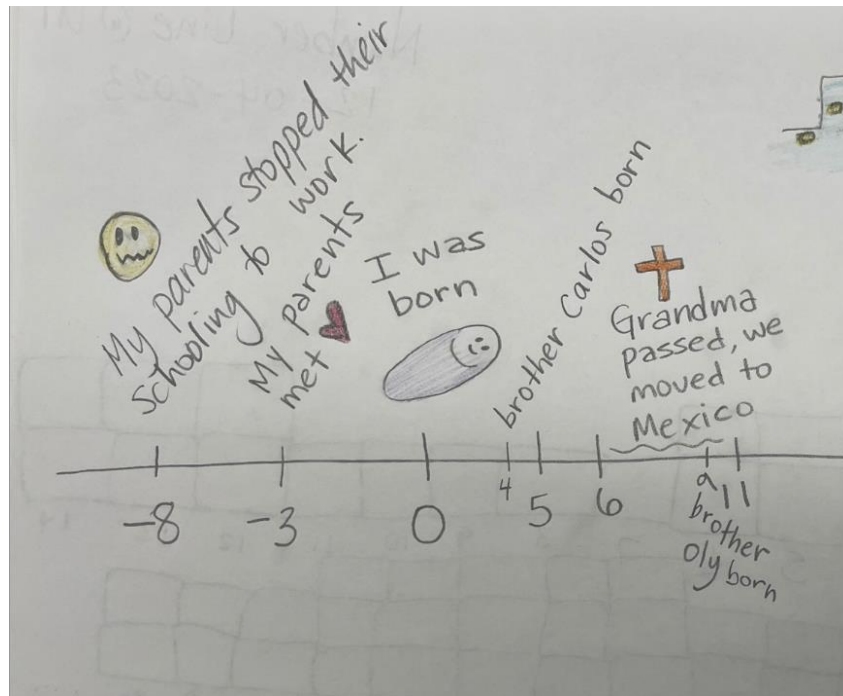 My parents stopped their
schooling to work.
My parents
met
I was
born
brother Carlos born
Grandma
passed, we
moved to
Mexico
-8 -3 0 4 5 6 9 11
brother
Oly born